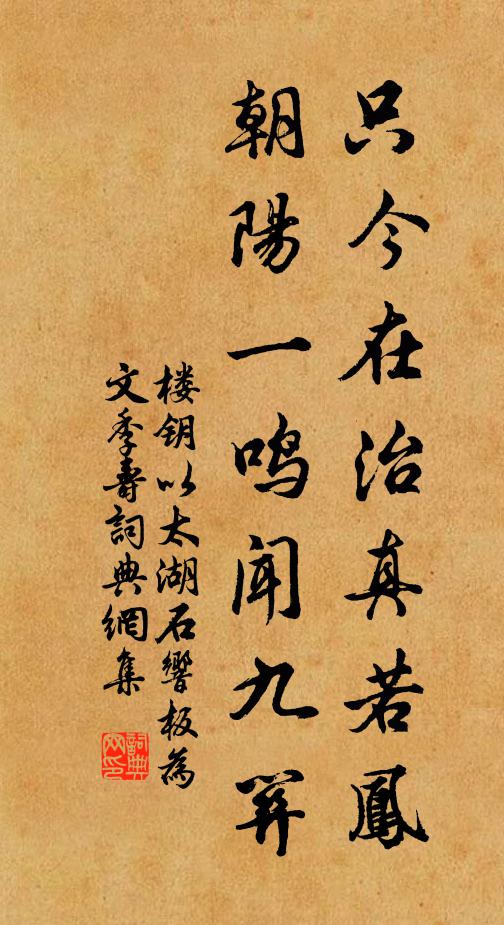 只今在治真若鳳
朝陽一鸣聞九
楼钥以太湖石響板為
文季壽詞典網集
詞典
网印